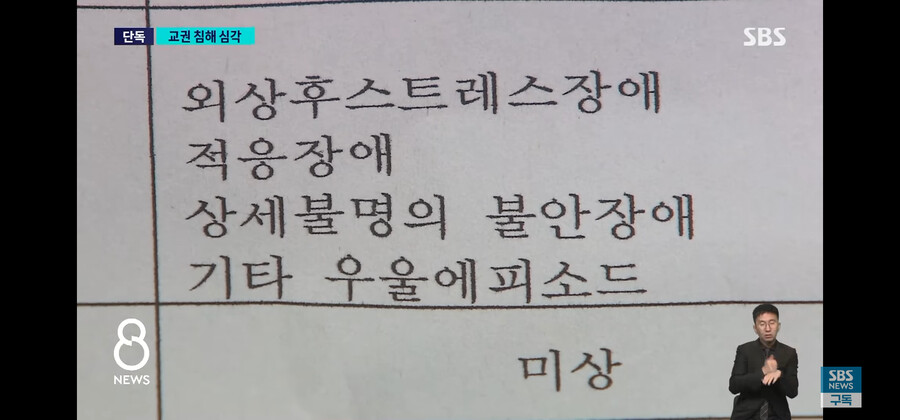 단독 교권 침해 심각
SBS
외상후스트레스장애
적응장애
상세불명의 불안장애
기타 우울에피소드
미상
8
NEWS
SBS
NEWS
구독